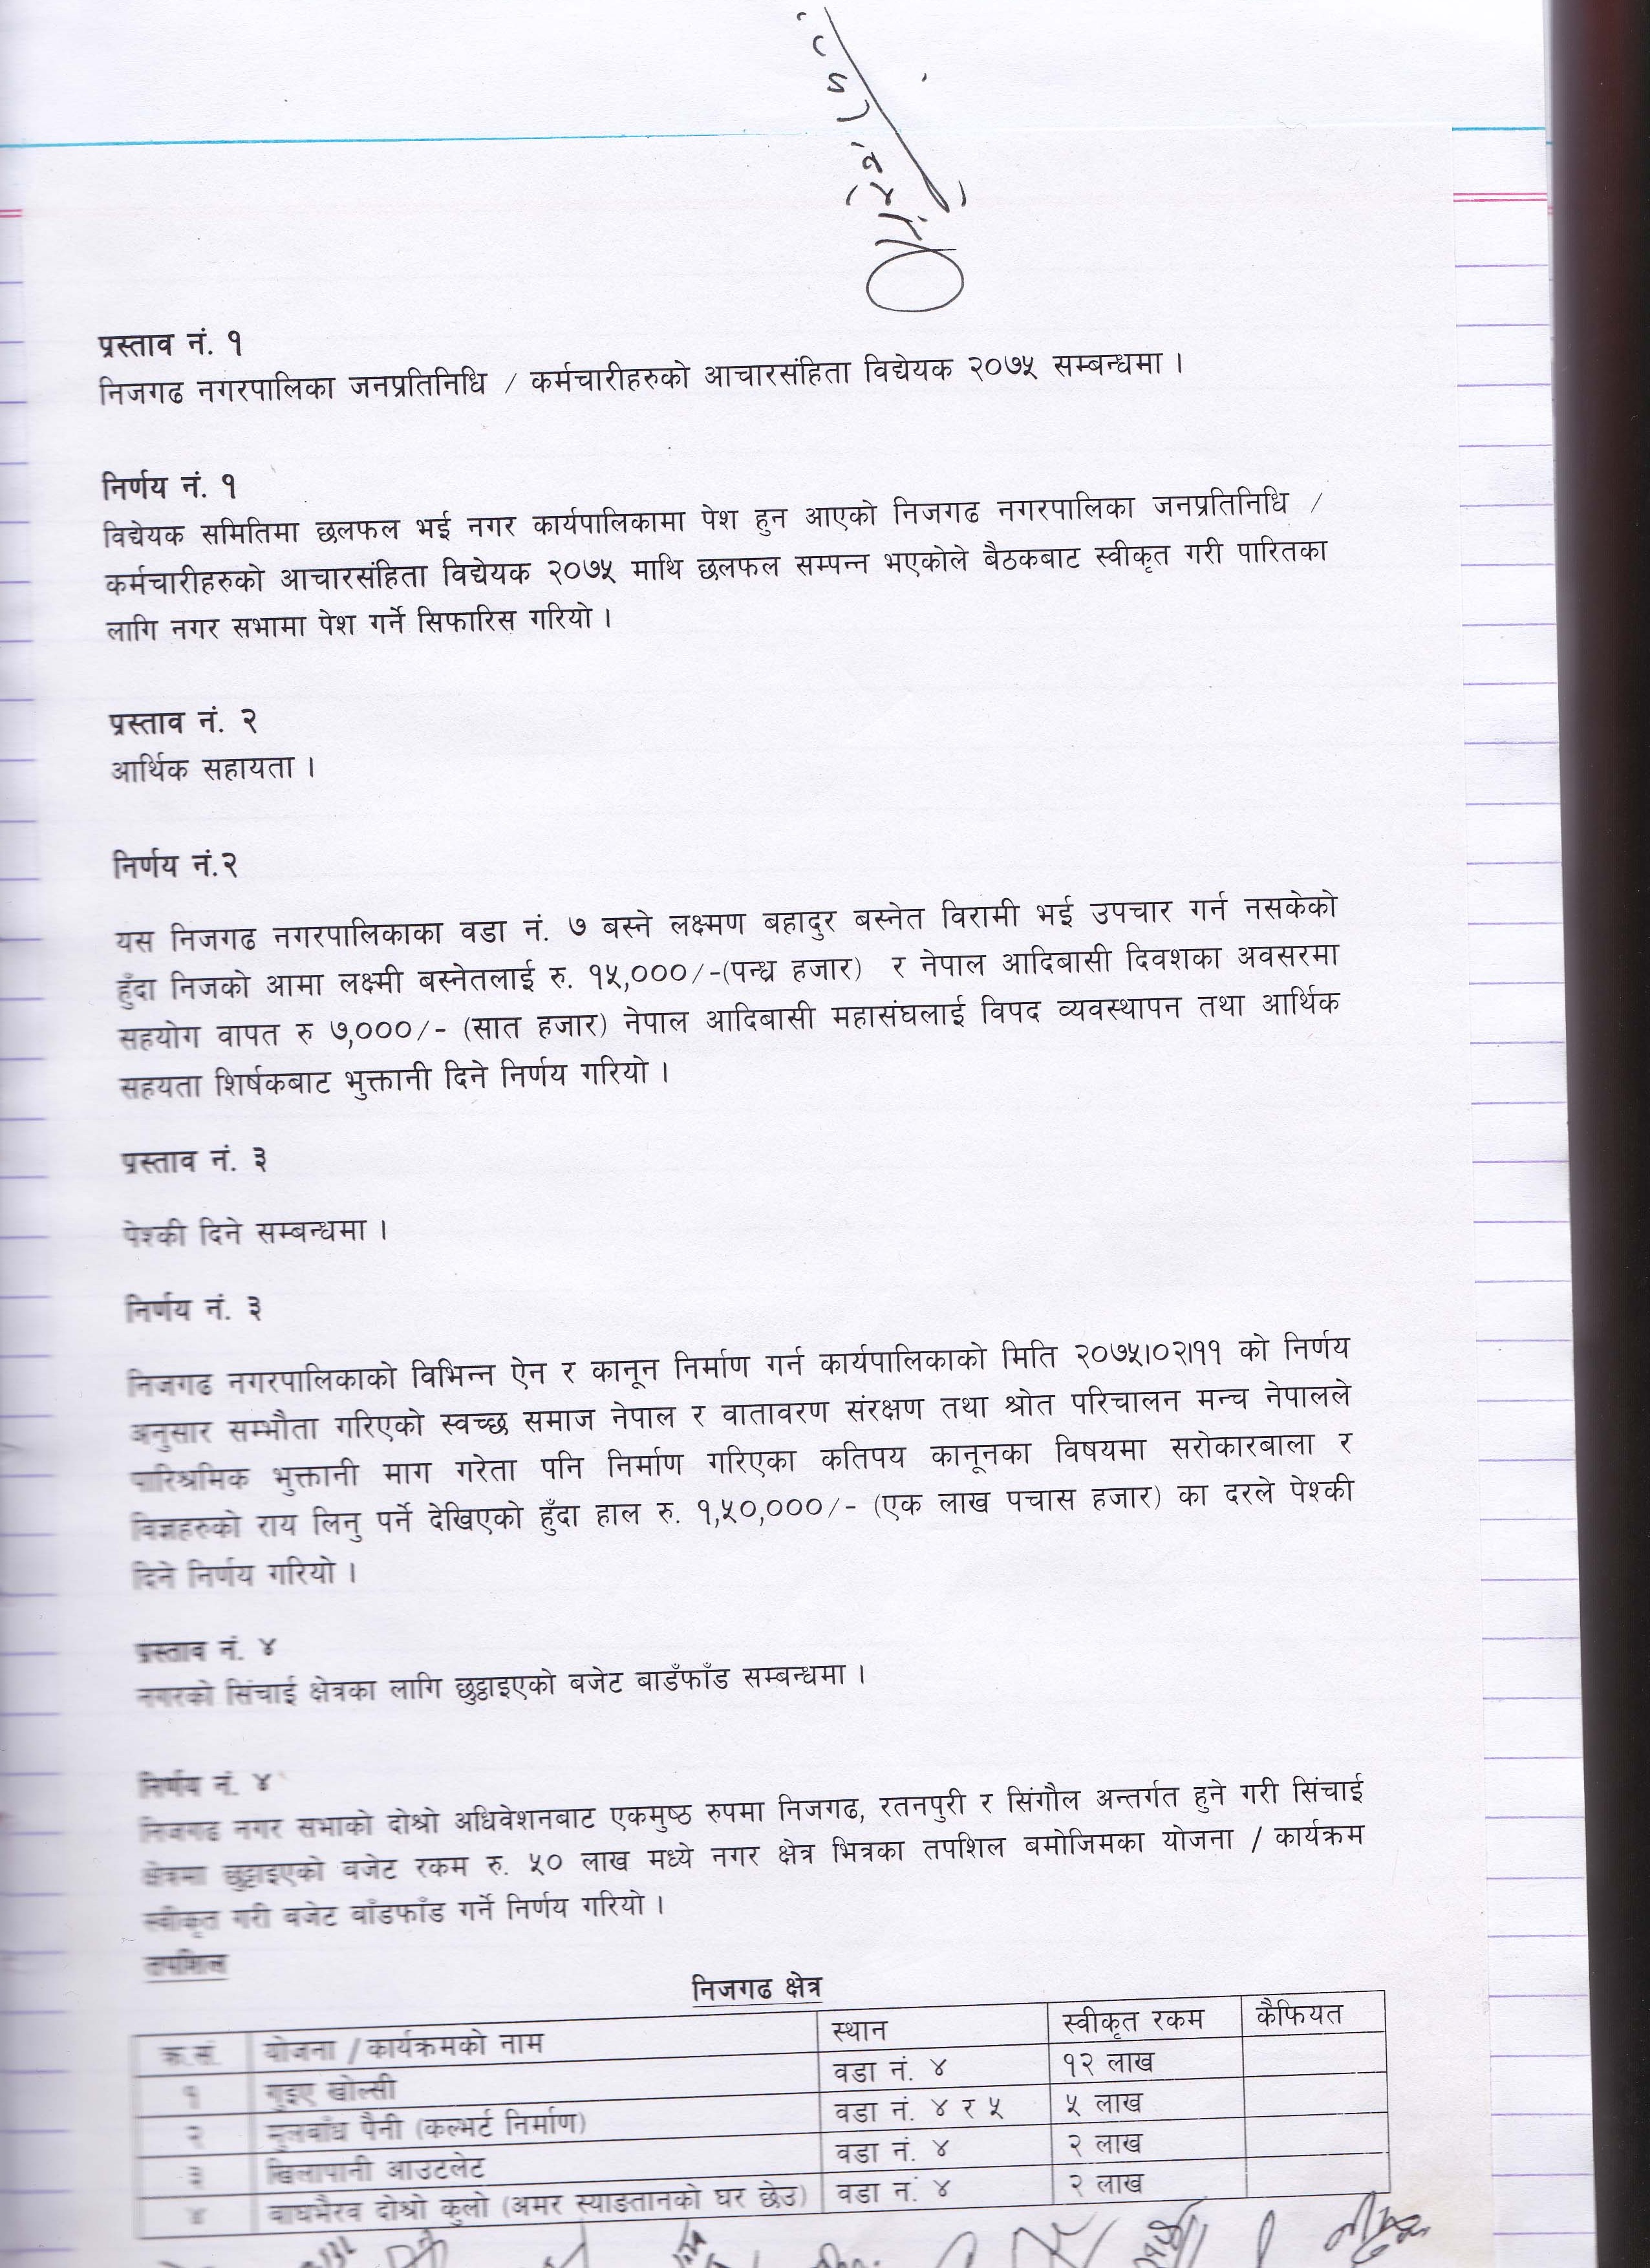 प्रस्ताव नं. १
निजगढ नगरपालिका जनप्रतिनिधि / कर्मचारीहरुको आचारसंहिता विद्येयक २०७५ सम्बन्धमा ।
निर्णय नं. १
विद्येयक समितिमा छलफल भई नगर कार्यपालिकामा पेश हुन आएको निजगढ नगरपालिका जनप्रतिनिधि /
कर्मचारीहरुको आचारसंहिता विद्येयक २०७५ माथि छलफल सम्पन्न भएकोले बैठकबाट स्वीकृत गरी पारितका
लागि नगर सभामा पेश गर्ने सिफारिस गरियो ।
प्रस्ताव नं. २
आर्थिक सहायता ।
निर्णय नं.२
यस निजगढ नगरपालिकाका वडा नं. ७ बस्ने लक्ष्मण बहादुर बस्नेत विरामी भई उपचार गर्न नसकेको
हुँदा निजको आमा लक्ष्मी बस्नेतलाई रु. १५,०००/-(पन्ध्र हजार) र नेपाल आदिबासी दिवशका अवसरमा
सहयोग वापत रु ७,०००/- (सात हजार) नेपाल आदिबासी महासंघलाई विपद व्यवस्थापन तथा आर्थिक
सहयता शिर्षकबाट भुक्तानी दिने निर्णय गरियो ।
प्रस्ताव नं. ३
पेश्की दिने सम्बन्धमा ।
निर्णय नं. ३
निजगढ नगरपालिकाको विभिन्न ऐन र कानून निर्माण गर्न कार्यपालिकाको मिति २०७५।०२।११ को निर्णय
अनुसार सम्झौता गरिएको स्वच्छ समाज नेपाल र वातावरण संरक्षण तथा श्रोत परिचालन मन्च नेपालले
पारिश्रमिक भुक्तानी माग गरेता पनि निर्माण गरिएका कतिपय कानूनका विषयमा सरोकारबाला र
विज्ञहरुको राय लिनु पर्ने देखिएको हुँदा हाल रु. १,५०,०००/- (एक लाख पचास हजार) का दरले पेश्की
दिने निर्णय गरियो ।
प्रस्ताव नं. ४
नगरको सिंचाई क्षेत्रका लागि छुट्ठाइएको बजेट बाडँफाँड सम्बन्धमा ।
निर्णय नं. ४
निजगढ नगर सभाको दोश्रो अधिवेशनबाट एकमुष्ठ रुपमा निजगढ, रतनपुरी र सिंगौल अन्तर्गत हुने गरी सिंचाई
क्षेत्रमा छुट्ठाइएको बजेट रकम रु. ५० लाख मध्ये नगर क्षेत्र भित्रका तपशिल बमोजिमका योजना / कार्यक्रम
स्वीकृत गरी बजेट बाँडफाँड गर्ने निर्णय गरियो ।
तपशिल
निजगढ क्षेत्र
क्र.सं. योजना / कार्यक्रमको नाम स्थान स्वीकृत रकम कैफियत
१ गुइए खोल्सी वडा नं. ४ १२ लाख
२ मुलबाँध पैनी (कल्भर्ट निर्माण) वडा नं. ४ र ५ ५ लाख
३ खिलापानी आउटलेट वडा नं. ४ २ लाख
४ बाघभैरव दोश्रो कुलो (अमर स्याङतानको घर छेउ) वडा नं. ४ २ लाख